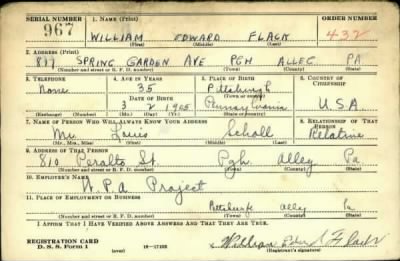 SERIAL NUMBER 1. NAME (Print) ORDER NUMBER
967 WILLIAM EDWARD FLACK 432
(First) (Middle) (Last)
2. ADDRESS (Print)
817 SPRING GARDEN AVE PGH ALLEG PA
(Number and street or R. F. D. number) (Town) (County) (State)
3. TELEPHONE 4. AGE IN YEARS 5. PLACE OF BIRTH 6. COUNTRY OF CITIZENSHIP
None 35 Pittsburgh
DATE OF BIRTH (Town or county)
3 2 1905 Pennsylvania U.S.A
(Exchange) (Number) (Mo.) (Day) (Yr.) (State or country)
7. NAME OF PERSON WHO WILL ALWAYS KNOW YOUR ADDRESS 8. RELATIONSHIP OF THAT PERSON
Mr. Louis Scholl Relative
(Mr., Mrs., Miss) (First) (Middle) (Last)
9. ADDRESS OF THAT PERSON
810 Peralta St. Pgh. Alleg Pa
(Number and street or R. F. D. number) (Town) (County) (State)
10. EMPLOYER'S NAME
W.P.A Project
11. PLACE OF EMPLOYMENT OR BUSINESS
Pittsburgh Alleg Pa
(Number and street or R. F. D. number) (Town) (County) (State)
I AFFIRM THAT I HAVE VERIFIED ABOVE ANSWERS AND THAT THEY ARE TRUE.
REGISTRATION CARD
D. S. S. Form 1 (over) 16—17105 William Edward Flack
(Registrant's signature)